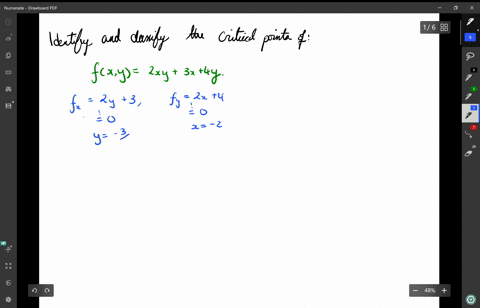 Numerade - Drawboard PDF
1/6
Identify and classify the critical points of:
f(x,y) = 2xy + 3x+4y.
fx = 2y +3, fy = 2x +4
= 0 = 0
y= -3 x = -2
48%